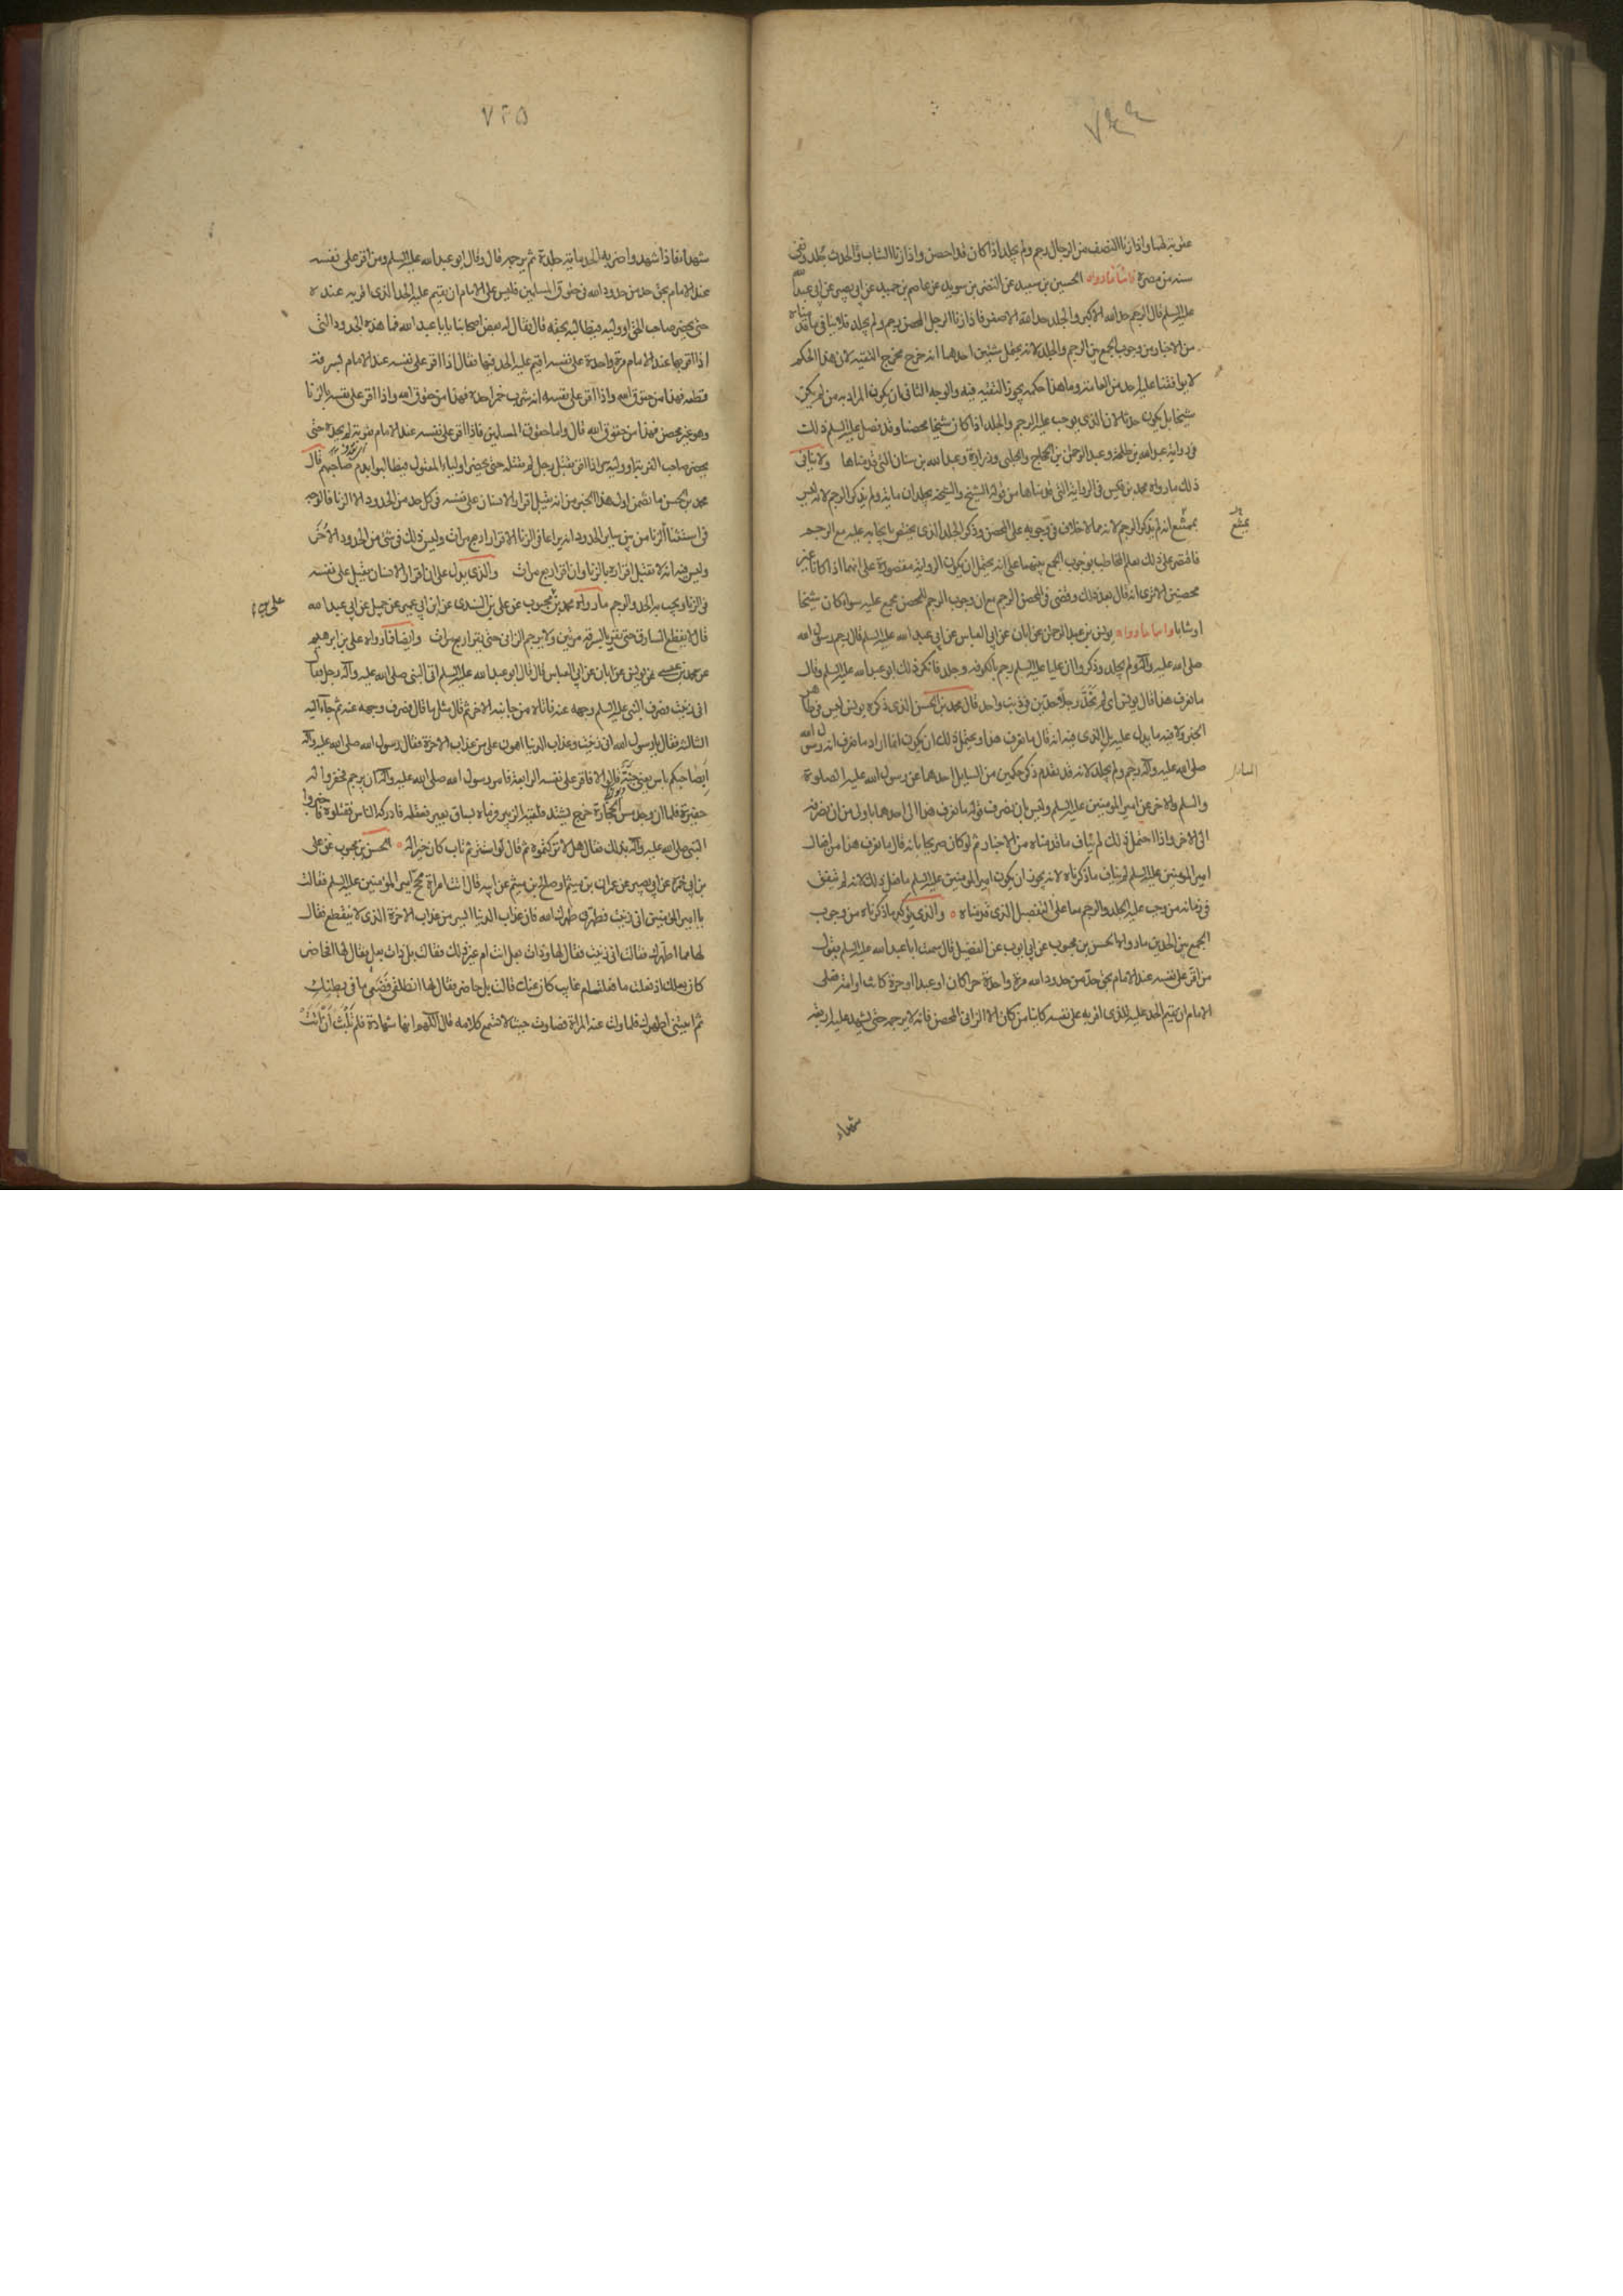 ٧٤٤
عقوبة لهما واذا زنا النصف من الرجال رجم ولم يجلد اذا كان قد احصن واذا زنا الشاب والحدث جلد ونفى
سنة من مصره فاما ما رواه الحسين بن سعيد عن النضر بن سويد عن عاصم بن حميد عن ابي بصير عن ابي عبد الله
عليه السلم قال الرجم حد الله الاكبر والجلد حد الله الاصغر فاذا زنا الرجل المحصن رجم ولم يجلد فلا ينافي ما قدمناه
من الاخبار من وجوب الجمع بين الرجم والجلد لانه يحتمل شيئين احدهما انه خرج مخرج التقية لان هذا الحكم
لا يوافقنا عليه احد من العامة وما هذا حكمه يجوز التقية فيه والوجه الثاني ان يكون المراد به من لم يكن
شيخا بل يكون حدثا لان الذي يوجب عليه الرجم والجلد اذا كان شيخا محصنا وقد فصل عليه السلم ذلك
في رواية عبد الله بن طلحة وعبد الرحمن بن الحجاج والحلبي وزرارة وعبد الله بن سنان التي قدمناها ولا ينافي
ذلك ما رواه محمد بن قيس في الرواية التي قدمناها من قوله الشيخ والشيخة يجلدان مائة ولم يذكر الرجم لانه ليس
بممتنع انه لم يذكر الرجم لانه مما لا خلاف في وجوبه على المحصن وذكر الجلد الذي يختص بايجابه عليه مع الرجم
فاقتصر على ذلك لعلم المخاطب بوجوب الجمع بينهما على انه يحتمل ان يكون الرواية مقصورة على انهما اذا كانا غير
محصنين الا ترى انه قال بعد ذلك وقضى في المحصن الرجم مع ان وجوب الرجم المحصن مجمع عليه سواء كان شيخا
او شابا واما ما رواه يونس بن عبد الرحمن عن ابان عن ابي العباس عن ابي عبد الله عليه السلم قال رجم رسول الله
صلى الله عليه وآله ولم يجلد وذكروا ان عليا عليه السلم رجم بالكوفة وجلد فانكر ذلك ابو عبد الله عليه السلم وقال
ما نعرف هذا قال يونس اي لم نحد رجلا حدين في ذنب واحد قال محمد بن الحسن الذي ذكره يونس ليس في ظاهر
الخبر ولا فيه ما يدل عليه بل الذي فيه انه قال ما نعرف هذا ويحتمل ذلك ان يكون انما اراد ما نعرف ان رسول الله
صلى الله عليه وآله رجم ولم يجلد لانه قد تقدم ذكر حكمين من السايل احدهما عن رسول الله عليه الصلوة
والسلم والاخر عن امير المومنين عليه السلم وليس بان نصرف قوله ما نعرف هذا الى احدهما باولى من ان نصرفه
الى الاخر واذا احتمل ذلك لم يناف ما قدمناه من الاخبار ثم لو كان صريحا بانه قال ما نعرف هذا من افعال
امير المومنين عليه السلم لم يناف ما ذكرناه لانه يجوز ان يكون امير المومنين عليه السلم ما فعل ذلك لانه لم يتفق
في زمانه من وجب عليه الجلد والرجم معا على التفصيل الذي قدمناه والذي يؤكد ما ذكرناه من وجوب
الجمع بين الحدين ما رواه الحسن بن محبوب عن ابي ايوب عن الفضيل قال سمعت ابا عبد الله عليه السلم يقول
من اقر على نفسه عند الامام بحق حد من حدود الله مرة واحدة حرا كان او عبدا او حرة كانت او امة فعلى
الامام ان يقيم الحد عليه للذي اقر به على نفسه كاينا من كان الا الزاني المحصن فانه لا يرجمه حتى يشهد عليه اربعة
شهداء
٧٤٥
شهداء فاذا شهدوا ضربه الحد مائة جلدة ثم يرجمه قال وقال ابو عبد الله عليه السلم ومن اقر على نفسه
عند الامام بحق حد من حدود الله في حقوق المسلمين فليس على الامام ان يقيم عليه الحد الذي اقر به عنده
حتى يحضر صاحب الحق او وليه فيطالبه بحقه قال فقال له بعض اصحابنا يا با عبد الله فما هذه الحدود التي
اذا اقر بها عند الامام مرة واحدة على نفسه اقيم عليه الحد فيها فقال اذا اقر على نفسه عند الامام بسرقة
قطعه فهذا من حقوق الله واذا اقر على نفسه انه شرب خمرا حده فهذا من حقوق الله واذا اقر على نفسه بالزنا
وهو غير محصن فهذا من حقوق الله قال واما حقوق المسلمين فاذا اقر على نفسه عند الامام بفرية لم يحده حتى
يحضر صاحب الفرية او وليه واذا اقر بقتل رجل لم يقتله حتى يحضر اولياء المقتول فيطالبوا بدم صاحبهم قال
محمد بن الحسن ما تضمن اول هذا الخبر من انه يقبل اقرار الانسان على نفسه في كل حد من الحدود الا الزنا فالوجه
في استثناء الزنا من بين ساير الحدود انه يراعا في الزنا الاقرار اربع مرات وليس ذلك في شئ من الحدود الاخر
وليس فيه انه لا يقبل اقراره بالزنا وان اقر اربع مرات والذي يدل على ان اقرار الانسان يقبل على نفسه
في الزنا ويجب به الحد والرجم ما رواه محمد بن محبوب عن علي بن السندي عن ابن ابي عمير عن جميل عن ابي عبد الله
قال لا يقطع السارق حتى يقر بالسرقة مرتين ولا يرجم الزاني حتى يقر اربع مرات وايضا فما رواه علي بن ابراهيم
عن محمد بن عيسى عن يونس عن ابان عن ابي العباس قال قال ابو عبد الله عليه السلم اتى النبي صلى الله عليه وآله رجل فقال
اني زنيت فصرف النبي عليه السلم وجهه عنه فاتاه من جانبه الاخر ثم قال مثل ما قال فصرف وجهه عنه ثم جاء اليه
الثالثة فقال يا رسول الله اني زنيت وعذاب الدنيا اهون علي من عذاب الاخرة فقال رسول الله صلى الله عليه وآله
ابصاحبكم باس يعني جنة فقالوا لا فاقر على نفسه الرابعة فامر رسول الله صلى الله عليه وآله ان يرجم فحفروا له
حفيرة فلما ان وجد مس الحجارة خرج يشتد فلقيه الزبير فرماه بساق بعير فعقله فادركه الناس فقتلوه فاخبروا
النبي صلى الله عليه وآله بذلك فقال هل لا تركتموه ثم قال لو استتر ثم تاب كان خيرا له الحسن بن محبوب عن علي
بن ابي حمزة عن ابي بصير عن عمران بن ميثم او صالح بن ميثم عن ابيه قال اتت امراة مجح امير المؤمنين عليه السلم فقالت
يا امير المومنين اني زنيت فطهرني طهرك الله فان عذاب الدنيا ايسر من عذاب الاخرة الذي لا ينقطع فقال
لها مما اطهرك فقالت اني زنيت فقال لها وذات بعل انت ام غير ذلك فقالت بل ذات بعل فقال لها افحاضر
كان بعلك اذ فعلت ما فعلت ام غايب كان عنك قالت بل حاضر فقال لها انطلقي فضعي ما في بطنك
ثم ايتيني اطهرك فلما ولت عنه المراة فصارت حيث لا تسمع كلامه قال اللهم انها شهادة فلم تلبث ان اتته